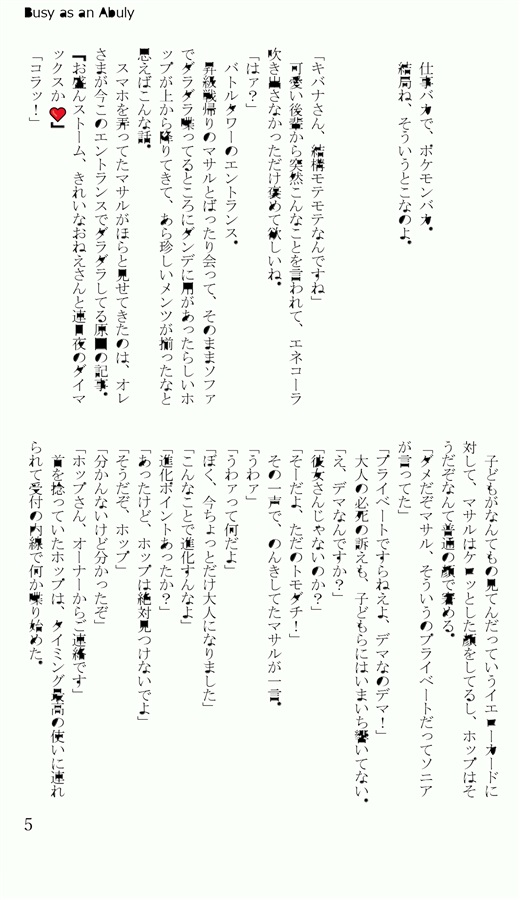 Busy as an Abuly
仕事バカで、ポケモンバカ。
結局ね、そういうとこなのよ。
「キバナさん、結構モテモテなんですね」
可愛い後輩から突然こんなことを言われて、エネコーラ
吹き出さなかっただけ褒めて欲しいね。
「はァ？」
バトルタワーのエントランス。
昇級戦帰りのマサルとばったり会って、そのままソファ
でダラダラ喋ってるところにダンデに用があったらしいホ
ップが上から降りてきて、あら珍しいメンツが揃ったなと
思えばこんな話。
スマホを弄ってたマサルがほらと見せてきたのは、オレ
さまが今このエントランスでダラダラしてる原因の記事。
『お盛んストーム、きれいなおねえさんと連日夜のダイマ
ックスか❤』
「コラッ！」
子どもがなんてもの見てんだっていうイエローカードに
対して、マサルはケロッとした顔をしてるし、ホップはそ
うだぞなんて普通の顔で窘める。
「ダメだぞマサル、そういうのプライベートだってソニア
が言ってた」
「プライベートですらねえよ、デマなのデマ！」
大人の必死の訴えも、子どもらにはいまいち響いてない。
「え、デマなんですか？」
「彼女さんじゃないのか？」
「そーだよ、ただのトモダチ！」
その一声で、のんきしてたマサルが一言。
「うわァ」
「うわァって何だよ」
「ぼく、今ちょっとだけ大人になりました」
「こんなことで進化すんなよ」
「進化ポイントあったか？」
「あったけど、ホップは絶対見つけないでよ」
「そうだぞ、ホップ」
「分かんないけど分かったぞ」
「ホップさん、オーナーからご連絡です」
首を捻っていたホップは、タイミング最高の使いに連れ
られて受付の内線で何か喋り始めた。
5